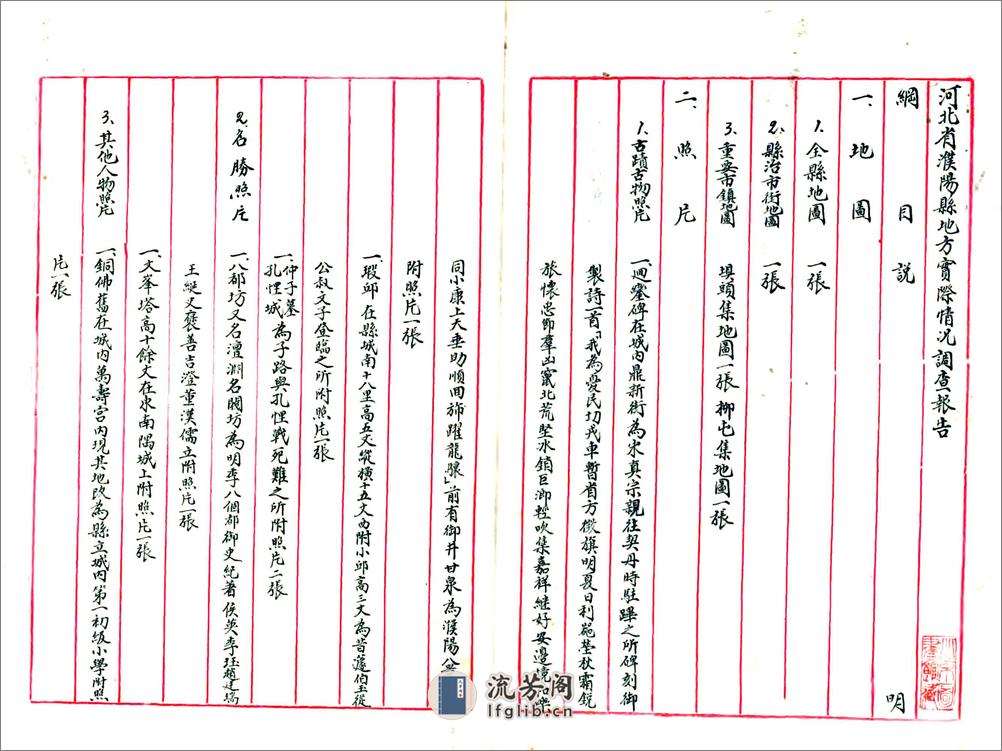 河北省濮陽縣地方實際情况調查報告
綱目說明
一、地圖
1、全縣地圖 一張
2、縣治市街地圖 一張
3、重要市鎮地圖 埧頭集地圖一張 柳屯集地圖一張
二、照片
1、古蹟古物照片 一、迴鑾碑在城内鼎新街為宋真宗親往契丹時駐蹕之所碑刻御
製詩一首「我為愛民切戎車暫省方徵旗明夏日利器墊秋霜銳
旅懷忠節羣凶竄北荒堅冰銷巨浪輕吹集嘉祥継好安邊境和樂
同小康上天垂助順回旆躍龍驤」前有御井甘泉為濮陽
附照片一張
一、瑕邱在縣城南十八里高五丈縱橫十五丈西附小邱高三丈為昔蘧伯玉從
公叔文子登臨之所附照片一張
一、仲子墓
孔悝城 為子路與孔悝戰死難之所附照片二張
2、名勝照片 一、八都坊又名澶淵名閥坊為明季八個都御史紀著侯英李珏趙廷瑞
王縱史褒善吉澄董漢儒立附照片一張
一、文峯塔高十餘丈在東南隅城上附照片一張
3、其他人物照片 一、銅佛舊在城内萬壽宮内現其地改為縣立城内第一初級小學附照
片一張
流芳阁
lfglib.cn